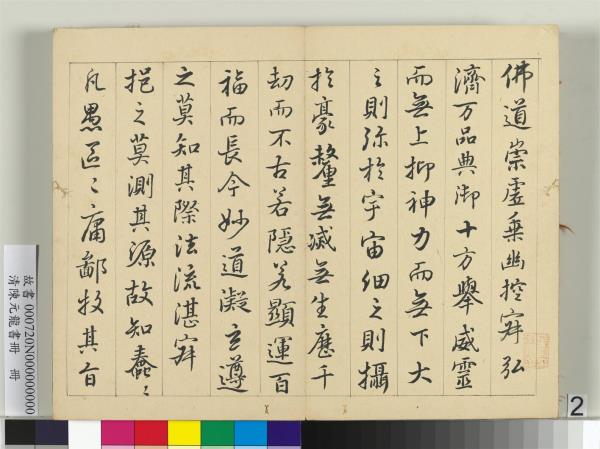 佛道崇虛乘幽控寂弘
濟万品典御十方舉威靈
而無上抑神力而無下大
之則彌於宇宙細之則攝
於豪釐無滅無生歷千
劫而不古若隱若顯運百
福而長今妙道凝玄遵
之莫知其際法流湛寂
挹之莫測其源故知蠢〻
凡愚區〻庸鄙投其旨
故書 000720N000000000
清陳元龍書冊 冊
2